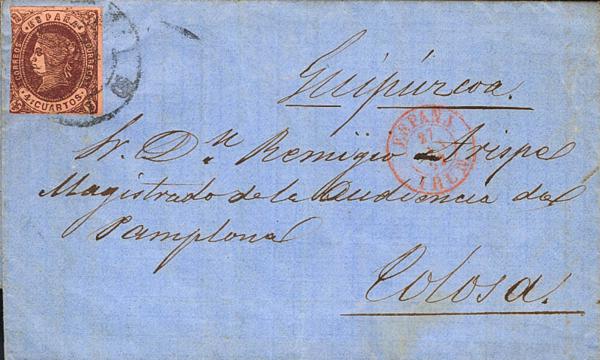 ESPAÑA
CORREOS
CORREOS
4 CUARTOS
Guipúrcoa.
ESPAÑA
27
IRUN
Sr. Dn. Remigio Arispe
Magistrado de la Audiencia de
Pamplona
Tolosa.